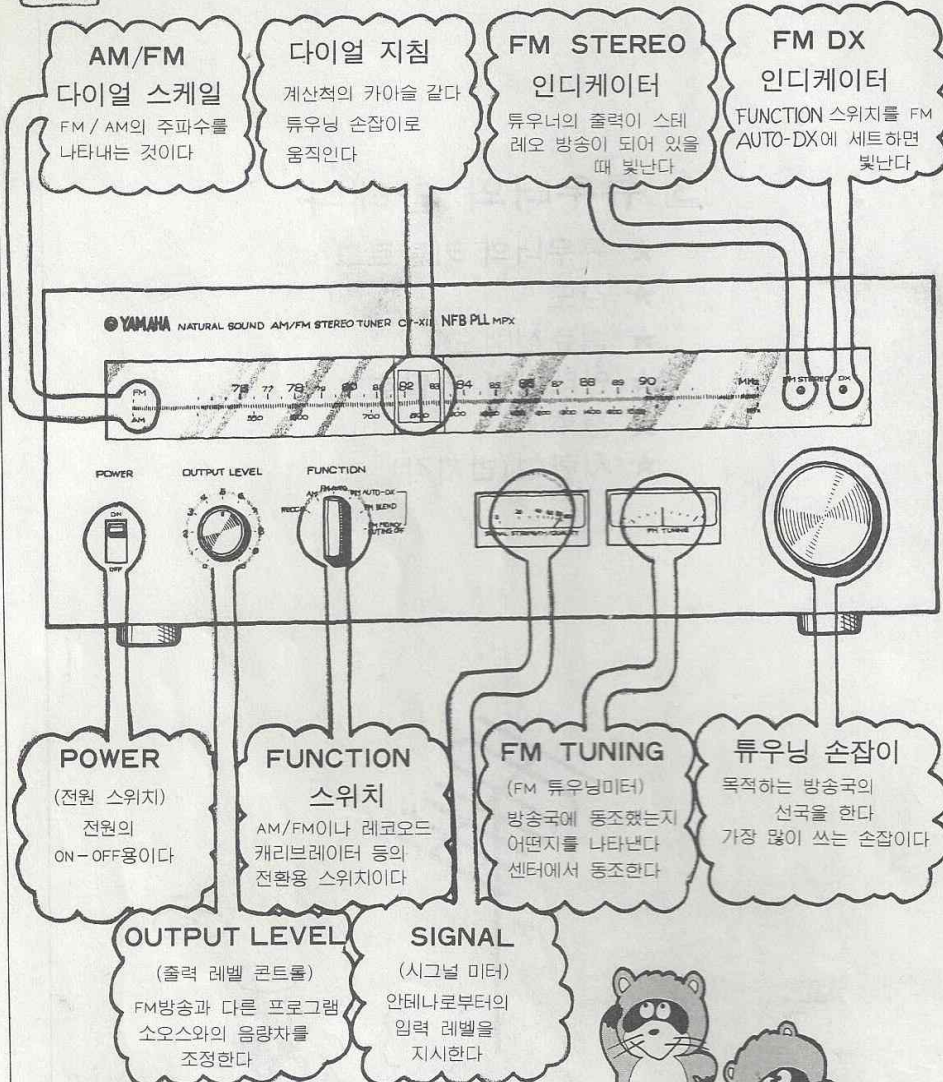 AM/FM
다이얼 스케일
FM / AM의 주파수를
나타내는 것이다
다이얼 지침
계산척의 카아슬 같다
튜우닝 손잡이로
움직인다
FM STEREO
인디케이터
튜우너의 출력이 스테
레오 방송이 되어 있을
때 빛난다
FM DX
인디케이터
FUNCTION 스위치를 FM
AUTO-DX에 세트하면
빛난다
YAMAHA NATURAL SOUND AM/FM STEREO TUNER NFB PLL MPX
FM 76 77 78 79 80 81 82 83 84 85 86 87 88 89 90 MHz FM STEREO DX
AM
POWER
OUTPUT LEVEL
FUNCTION
ON
OFF
AM FM AUTO FM AUTO-DX
FM BLEND
SIGNAL STRENGTH/QUALITY
FM TUNING
POWER
(전원 스위치)
전원의
ON-OFF용이다
FUNCTION
스위치
AM/FM이나 레코오드
캐리브레이터 등의
전환용 스위치이다
FM TUNING
(FM 튜우닝미터)
방송국에 동조했는지
어떤지를 나타낸다
센터에서 동조한다
튜우닝 손잡이
목적하는 방송국의
선국을 한다
가장 많이 쓰는 손잡이다
OUTPUT LEVEL
(출력 레벨 콘트롤)
FM방송과 다른 프로그램
소오스와의 음량차를
조정한다
SIGNAL
(시그널 미터)
안테나로부터의
입력 레벨을
지시한다